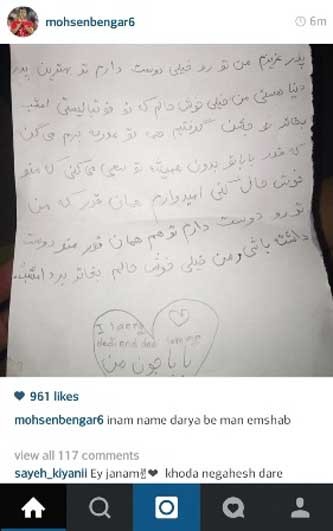 mohsenbengar6
6m
پدر عزیزم من تو رو خیلی دوست دارم تو بهترین پدر
دنیا هستی من خیلی خوش حالم که تو فوتبالیستی امشب
بخاتر
که قدر باباتو بدون همیشه تو سعی می کنی که منو
خوش حال کنی امیدوارم همان قدر که من
تو رو دوست دارم تو هم همان قدر منو دوست
داشته باشی و من خیلی خوش حالم بخاتر برد امشب.
I
dad and dad
بابا جون من
961 likes
mohsenbengar6 inam name darya be man emshab
view all 117 comments
sayeh_kiyanii Ey janam✌❤ khoda negahesh dare